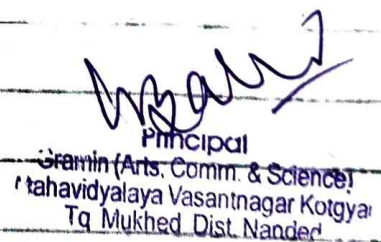 Principal
Gramin (Arts, Comm. & Science)
Mahavidyalaya Vasantnagar Kotgyal
Tq Mukhed Dist. Nanded